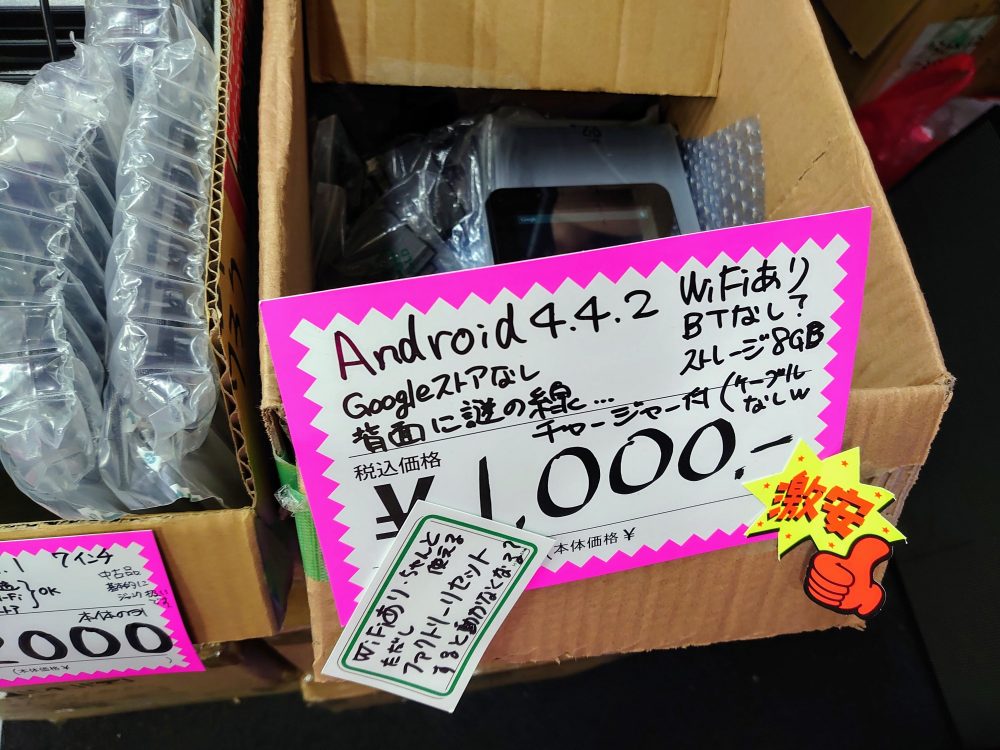 Android 4.4.2
WiFiあり
BTなし?
ストレージ8GB
Googleストアなし
背面に謎の線...
チャージャー付(ケーブル
なしw
税込価格
¥1,000.-
本体価格 ¥
激安
WiFiあり・ちゃんと
使える
ただし
ファクトリーリセット
すると動かなくなる?
.1 7インチ
中古品
基本的に
ジャンク扱い
}OK
本体のみ
2000